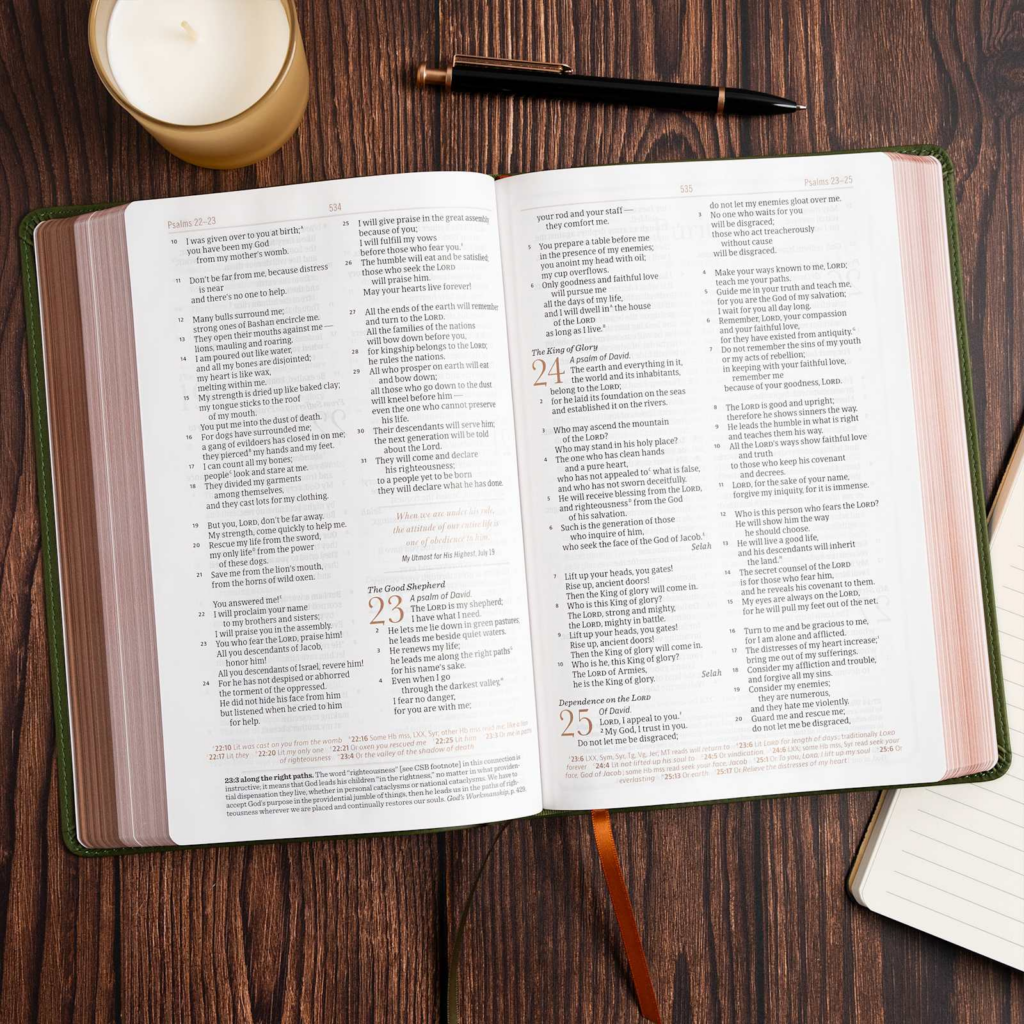 Psalms 22–23
534
10 I was given over to you at birth;
you have been my God
from my mother's womb.
11 Don't be far from me, because distress
is near
and there's no one to help.
12 Many bulls surround me;
strong ones of Bashan encircle me.
13 They open their mouths against me —
lions, mauling and roaring.
14 I am poured out like water,
and all my bones are disjointed;
my heart is like wax,
melting within me.
15 My strength is dried up like baked clay;
my tongue sticks to the roof
of my mouth.
You put me into the dust of death.
16 For dogs have surrounded me;
a gang of evildoers has closed in on me;
they pierced my hands and my feet.
17 I can count all my bones;
people look and stare at me.
18 They divided my garments
among themselves,
and they cast lots for my clothing.
19 But you, LORD, don't be far away.
My strength, come quickly to help me.
20 Rescue my life from the sword,
my only life from the power
of these dogs.
21 Save me from the lion's mouth,
from the horns of wild oxen.
You answered me!
22 I will proclaim your name
to my brothers and sisters;
I will praise you in the assembly.
23 You who fear the LORD, praise him!
All you descendants of Jacob,
honor him!
All you descendants of Israel, revere him!
24 For he has not despised or abhorred
the torment of the oppressed.
He did not hide his face from him
but listened when he cried to him
for help.
25 I will give praise in the great assembly
because of you;
I will fulfill my vows
before those who fear you.
26 The humble will eat and be satisfied;
those who seek the LORD
will praise him.
May your hearts live forever!
27 All the ends of the earth will remember
and turn to the LORD.
All the families of the nations
will bow down before you,
28 for kingship belongs to the LORD;
he rules the nations.
29 All who prosper on earth will eat
and bow down;
all those who go down to the dust
will kneel before him —
even the one who cannot preserve
his life.
30 Their descendants will serve him;
the next generation will be told
about the Lord.
31 They will come and declare
his righteousness;
to a people yet to be born
they will declare what he has done.
When we are under his rule,
the attitude of our entire life is
one of obedience to him.
My Utmost for His Highest, July 19
The Good Shepherd
23 A psalm of David.
The LORD is my shepherd;
I have what I need.
2 He lets me lie down in green pastures;
he leads me beside quiet waters.
3 He renews my life;
he leads me along the right paths
for his name's sake.
4 Even when I go
through the darkest valley,
I fear no danger,
for you are with me;
22:10 Lit was cast on you from the womb 22:16 Some Hb mss, LXX, Syr; other Hb mss read me, like a lion
22:17 Lit they 22:20 Lit my only one 22:21 Or oxen you rescued me 22:25 Lit him
of righteousness 23:4 Or the valley of the shadow of death
23:3 along the right paths. The word "righteousness" [see CSB footnote] in this connection is
instructive; it means that God leads his children "in the rightness," no matter in what providen-
tial dispensation they live, whether in personal cataclysms or national cataclysms. We have to
accept God's purpose in the providential jumble of things, then he leads us in the paths of righ-
teousness wherever we are placed and continually restores our souls. God's Workmanship, p. 428
535
Psalms 23–25
your rod and your staff —
they comfort me.
5 You prepare a table before me
in the presence of my enemies;
you anoint my head with oil;
my cup overflows.
6 Only goodness and faithful love
will pursue me
all the days of my life,
and I will dwell in the house
of the LORD
as long as I live.
The King of Glory
24 A psalm of David.
The earth and everything in it,
the world and its inhabitants,
belong to the LORD;
2 for he laid its foundation on the seas
and established it on the rivers.
3 Who may ascend the mountain
of the LORD?
Who may stand in his holy place?
4 The one who has clean hands
and a pure heart,
who has not appealed to what is false,
and who has not sworn deceitfully.
5 He will receive blessing from the LORD,
and righteousness from the God
of his salvation.
6 Such is the generation of those
who inquire of him,
who seek the face of the God of Jacob.
Selah
7 Lift up your heads, you gates!
Rise up, ancient doors!
Then the King of glory will come in.
8 Who is this King of glory?
The LORD, strong and mighty,
the LORD, mighty in battle.
9 Lift up your heads, you gates!
Rise up, ancient doors!
Then the King of glory will come in.
10 Who is he, this King of glory?
The LORD of Armies,
he is the King of glory. Selah
Dependence on the LORD
25 Of David.
LORD, I appeal to you.
2 My God, I trust in you.
Do not let me be disgraced;
do not let my enemies gloat over me.
3 No one who waits for you
will be disgraced;
those who act treacherously
without cause
will be disgraced.
4 Make your ways known to me, LORD;
teach me your paths.
5 Guide me in your truth and teach me,
for you are the God of my salvation;
I wait for you all day long.
6 Remember, LORD, your compassion
and your faithful love,
for they have existed from antiquity.
7 Do not remember the sins of my youth
or my acts of rebellion;
in keeping with your faithful love,
remember me
because of your goodness, LORD.
8 The LORD is good and upright;
therefore he shows sinners the way.
9 He leads the humble in what is right
and teaches them his way.
10 All the LORD's ways show faithful love
and truth
to those who keep his covenant
and decrees.
11 LORD, for the sake of your name,
forgive my iniquity, for it is immense.
12 Who is this person who fears the LORD?
He will show him the way
he should choose.
13 He will live a good life,
and his descendants will inherit
the land.
14 The secret counsel of the LORD
is for those who fear him,
and he reveals his covenant to them.
15 My eyes are always on the LORD,
for he will pull my feet out of the net.
16 Turn to me and be gracious to me,
for I am alone and afflicted.
17 The distresses of my heart increase;
bring me out of my sufferings.
18 Consider my affliction and trouble,
and forgive all my sins.
19 Consider my enemies;
they are numerous,
and they hate me violently.
20 Guard me and rescue me;
do not let me be disgraced,
23:6 LXX, Sym, Syr, Tg, Vg, Jer; MT reads will return to 23:6 Lit LORD for length of days; traditionally LORD
forever 24:4 Lit not lifted up his soul to 24:5 Or vindication 24:6 LXX; some Hb mss, Syr read seek your
face, God of Jacob; some Hb mss read seek your face, Jacob 25:1 Or To you, LORD, I lift up my soul 25:6 Or
everlasting 25:13 Or earth 25:17 Or Relieve the distresses of my heart